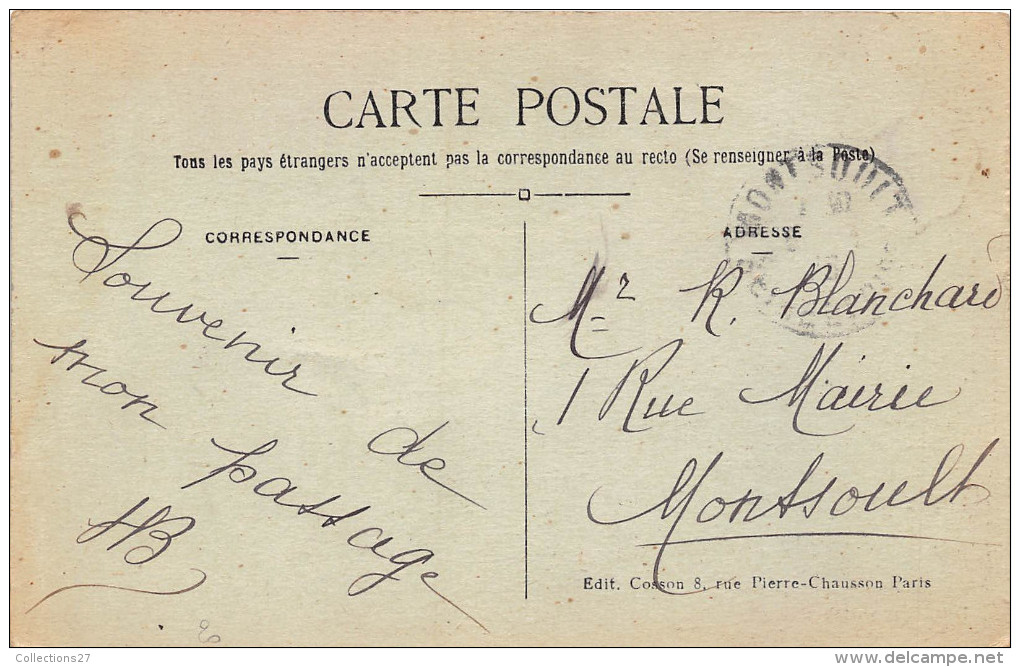 CARTE POSTALE
Tous les pays étrangers n'acceptent pas la correspondance au recto (Se renseigner à la Poste)
CORRESPONDANCE
Souvenir de
mon passage
HB
ADRESSE
MONTSOULT
Mr R. Blanchard
1 Rue Mairie
Montsoult
Edit. Cosson 8, rue Pierre-Chausson Paris
Collections27
www.delcampe.net